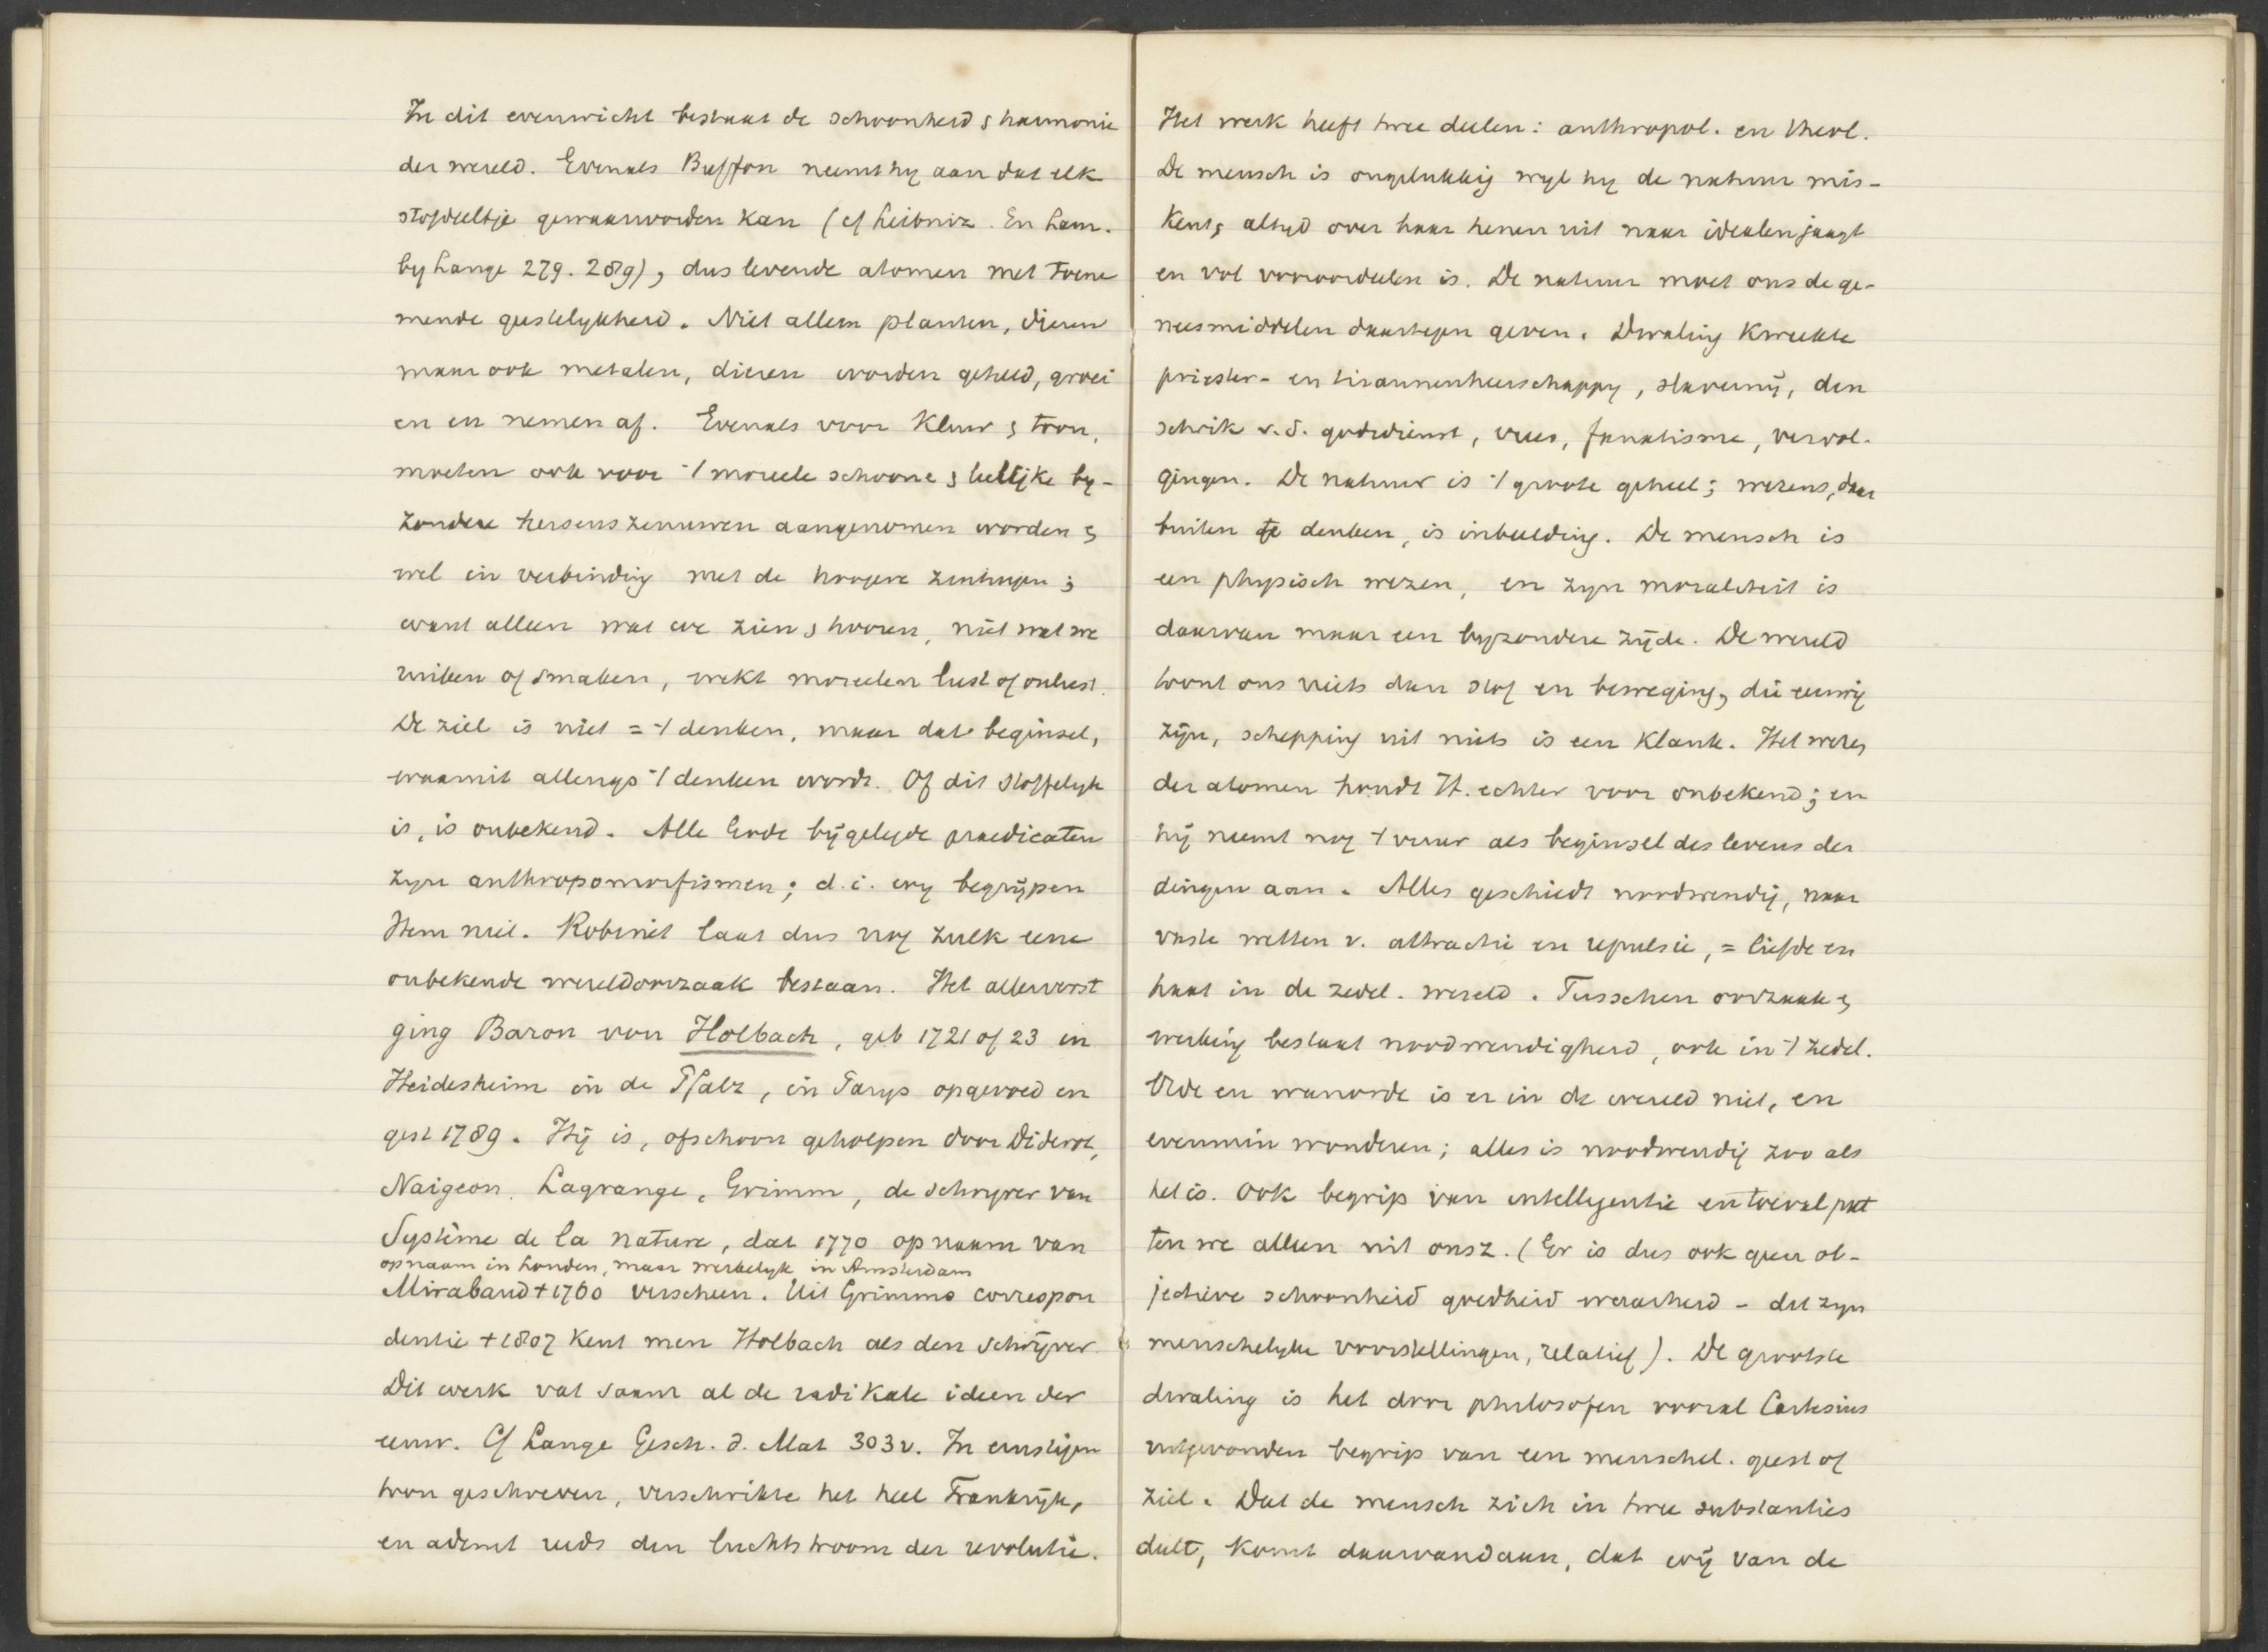 In dit evenwicht bestaat de schoonheid & harmonie
der wereld. Evenals Buffon neemt hy aan dat elk
stofdeeltje gewaarworden kan (cf Leibniz. En Lam.
by Lange 279. 289), dus levende atomen met toene
mende geestelykheid. Niet alleen planten, dieren
maar ook metalen, dieren worden geteeld, groei
en en nemen af. Evenals voor kleur & toon,
moeten ook voor -/ moreele schoone & leelijke by-
zondere hersenszenuwen aangenomen worden &
wel in verbinding met de hoogere zintuigen;
want alleen wat we zien & hooren, niet wat we
ruiken of smaken, wekt moreelen lust of onlust.
De ziel is niet = -/ denken, maar dat beginsel,
waaruit allengs -/ denken wordt. Of dit stoffelyk
is, is onbekend. Alle Gode bijgelegde praedicaten
zyn anthropomorfismen; d.i. wy begrijpen
Hem niet. Robinet laat dus nog zulk eene
onbekende wereldoorzaak bestaan. Het allerverst
ging Baron von Holbach, geb 1721 of 23 in
Heidesheim in de Pfalz, in Parys opgevoed en
gest 1789. Hij is, ofschoon geholpen door Diderot,
Naigeon, Lagrange, Grimm, de schryver van
Système de la nature, dat 1770 op naam van
op naam in Londen, maar werkelyk in Amsterdam
Miraband +1760 verscheen. Uit Grimms correspon
dentie +1807 kent men Holbach als den schrijver.
Dit werk vat saam al de radikale ideen der
eeuw. Cf Lange Gesch. d. Mat 303v. In ernstigen
toon geschreven, verschrikte het heel Frankrijk,
en ademt reeds den luchtstroom der revolutie.
Het werk heeft twee deelen: anthropol. en theol.
De mensch is ongelukkig wyl hy de natuur mis-
kent, altyd over haar henen uit naar idealen jaagt
en vol vooroordeelen is. De natuur moet ons de ge-
neesmiddelen daartegen geven. Dwaling kweekte
priester- en tirannenheerschappy, slavernij, den
schrik v.d. godsdienst, vrees, fanatisme, vervol-
gingen. De natuur is -/ groote geheel; wezens, daar
buiten te denken, is inbeelding. De mensch is
een physisch wezen, en zyn moraliteit is
daarvan maar een byzondere zijde. De wereld
toont ons niets dan stof en beweging, die eeuwig
zijn, schepping uit niets is een klank. Het wezen
der atomen houdt H. echter voor onbekend; en
hij neemt nog -/ vuur als beginsel des levens der
dingen aan. Alles geschiedt noodwendig, naar
vaste wetten v. attractie en repulsie, = liefde en
haat in de zedel. wereld. Tusschen oorzaak &
werking bestaat noodwendigheid, ook in -/ zedel.
Orde en wanorde is er in de wereld niet, en
evenmin wonderen; alles is noodwendig zoo als
het is. Ook begrip van intelligentie en toeval put
ten we alleen uit onsz. (Er is dus ook geen ob-
jectieve schoonheid goedheid waarheid - dit zyn
menschelyke voorstellingen, relatief). De grootste
dwaling is het door philosofen vooral Cartesius
uitgevonden begrip van een menschel. geest of
ziel. Dat de mensch zich in twee substanties
deelt, komt daarvandaan, dat wij van de